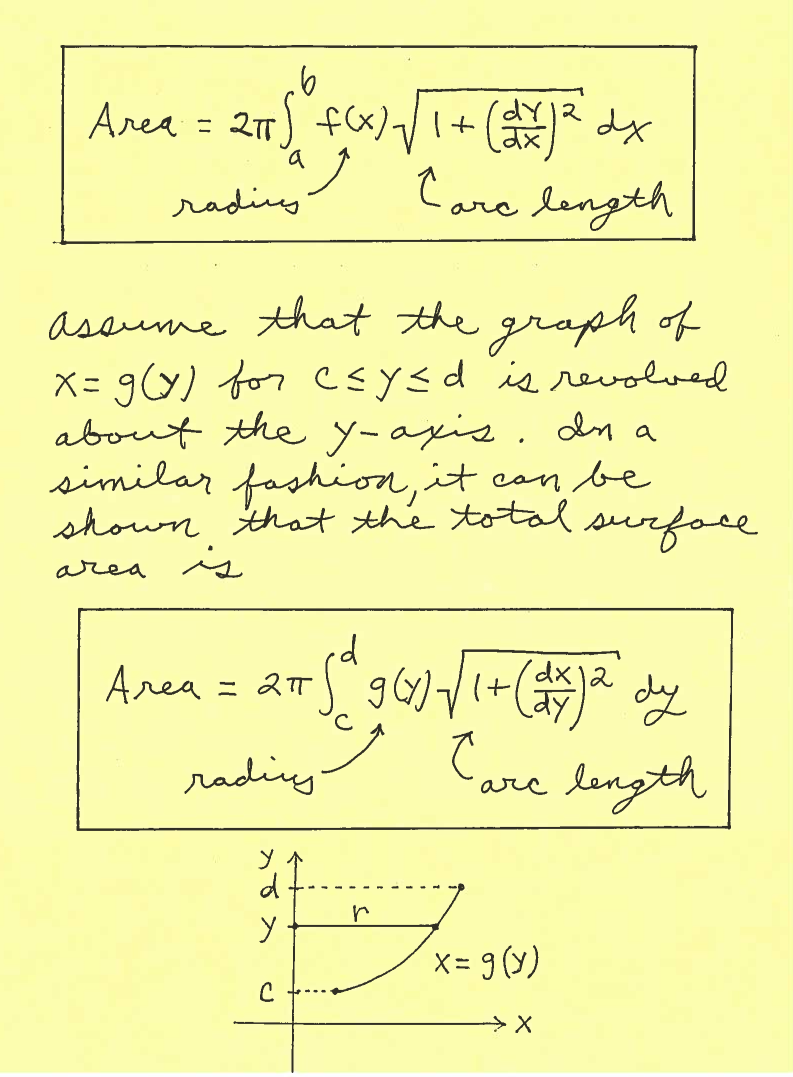 Area = 2π∫_a^b f(x)√(1+(dy/dx)^2) dx
radius arc length
Assume that the graph of
x = g(y) for c ≤ y ≤ d is revolved
about the y-axis. In a
similar fashion, it can be
shown that the total surface
area is
Area = 2π∫_c^d g(y)√(1+(dx/dy)^2) dy
radius arc length
y
d
y r
x = g(y)
c
x